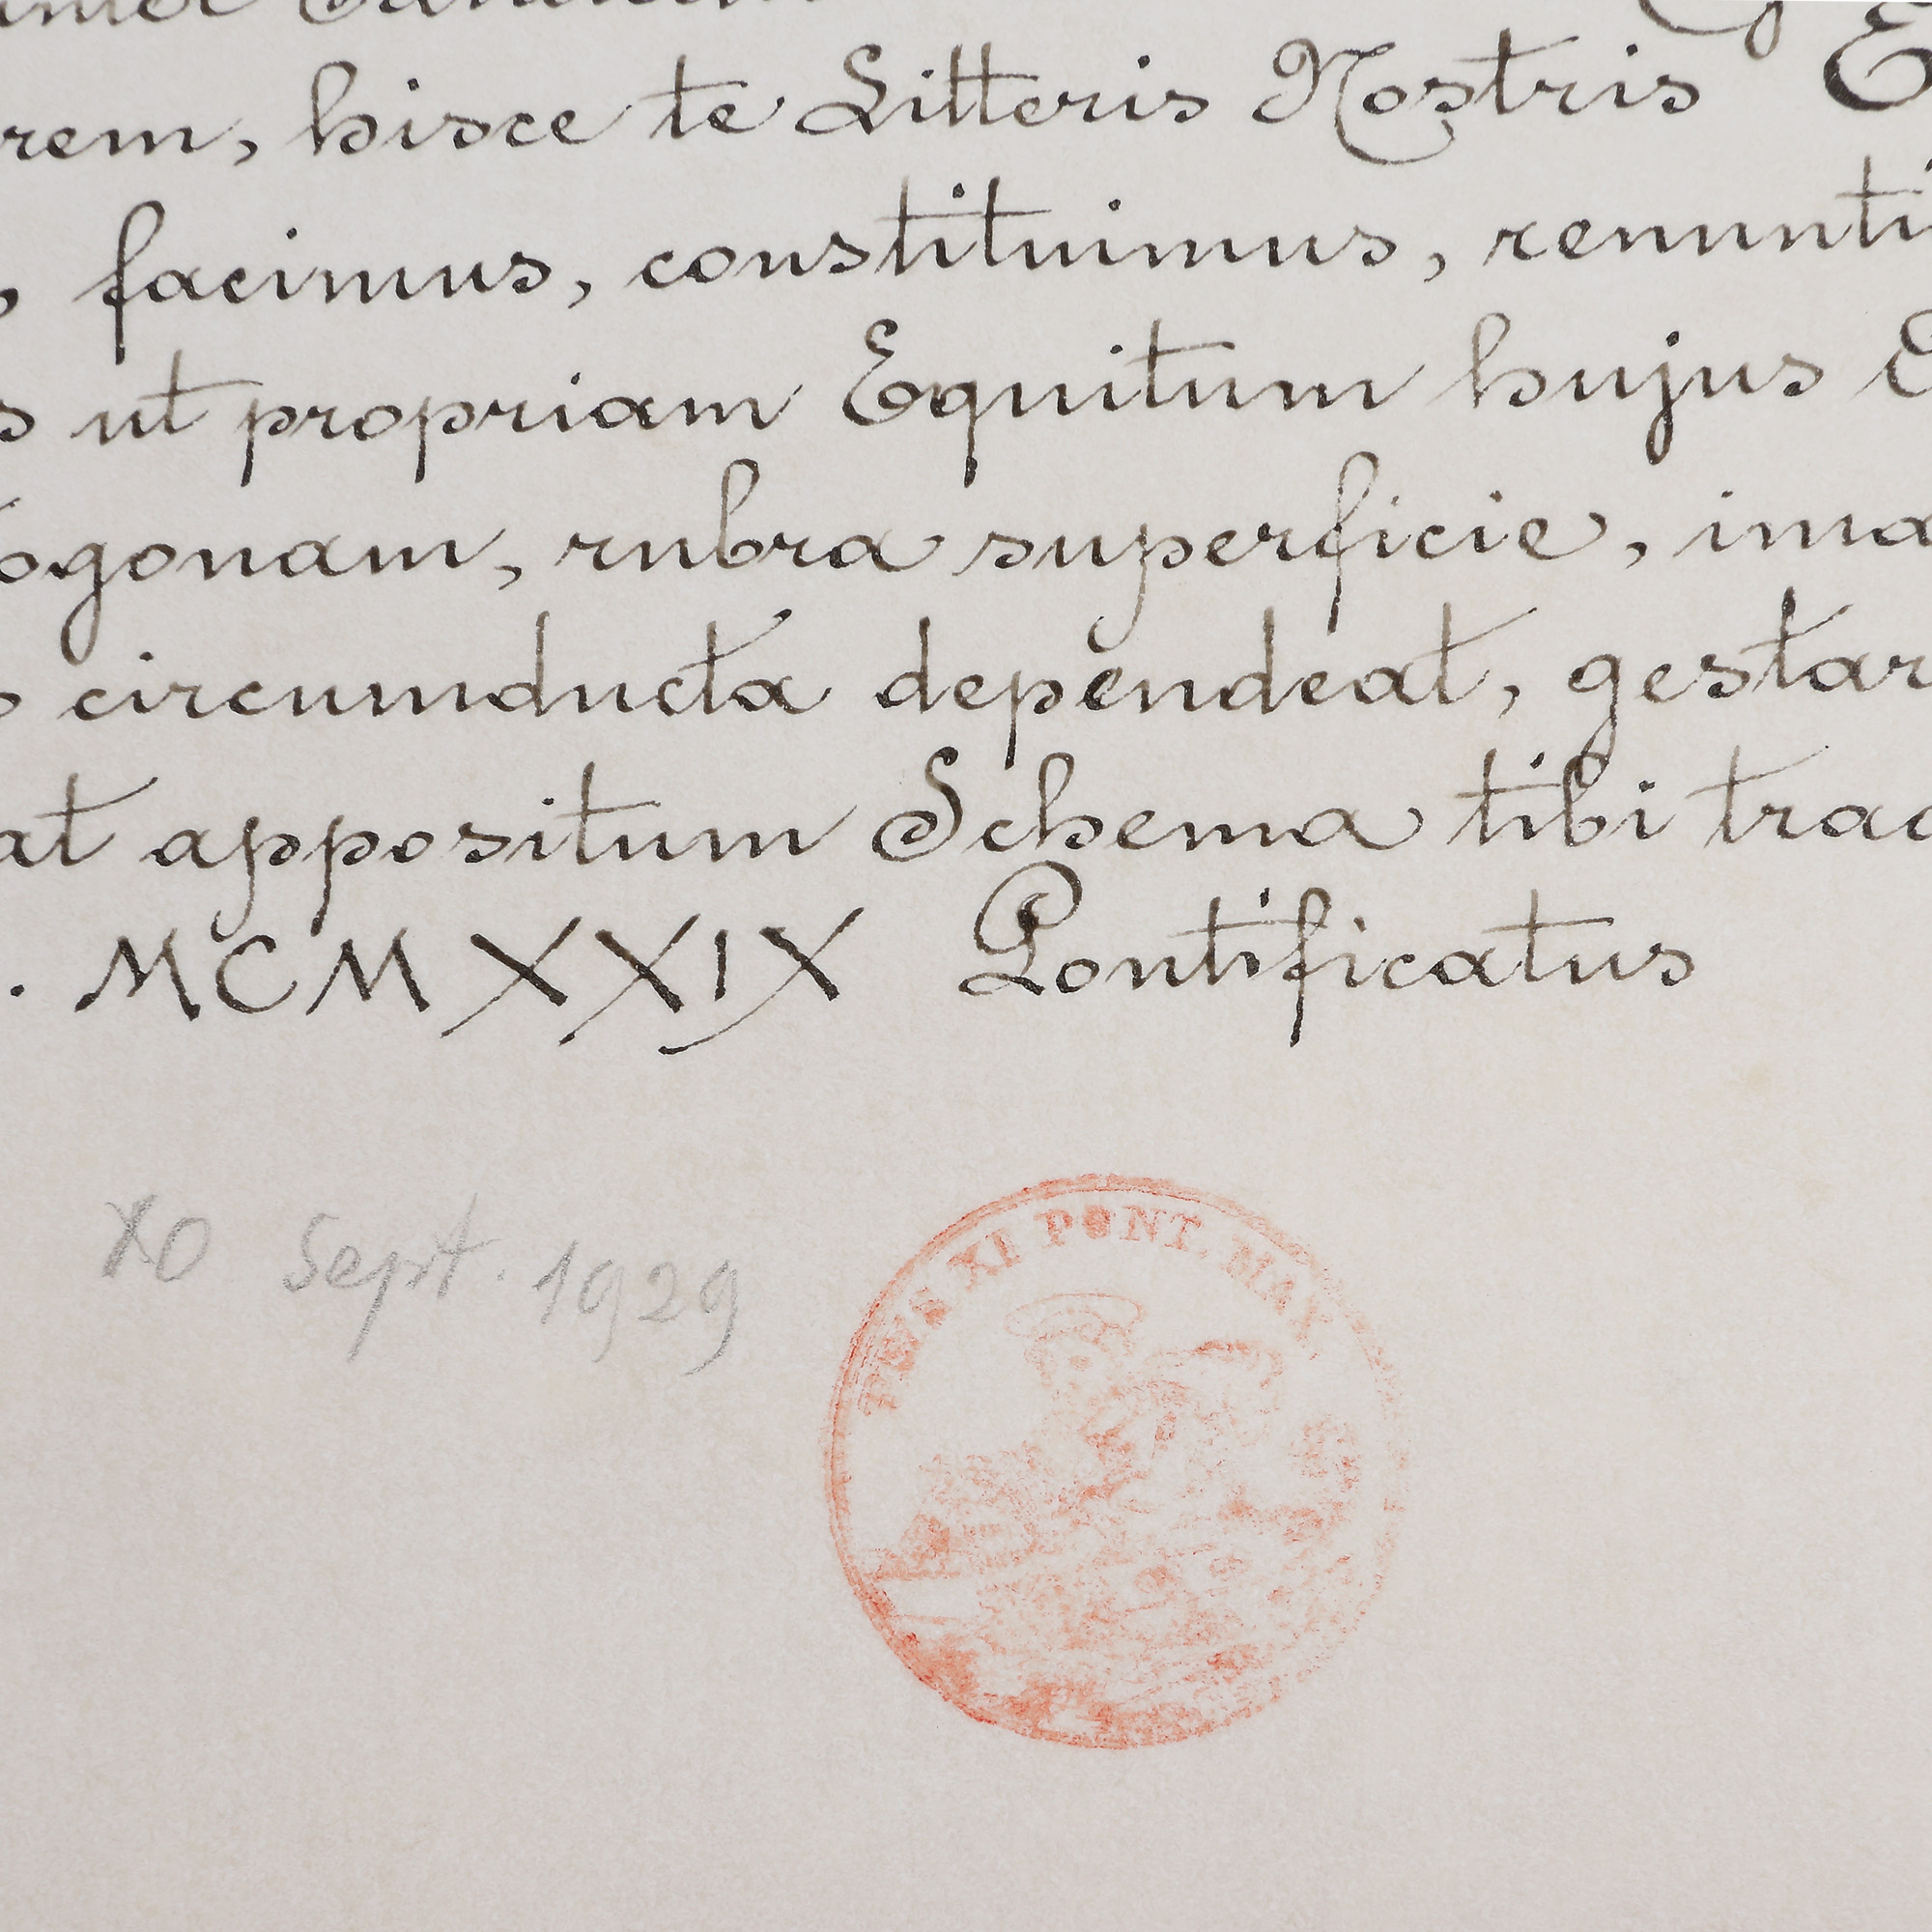 rem, hisce te Litteris Nostris E
, facimus, constituimus, renunti
s ut propriam Equitum hujus O
ogonam, rubra superficie, ima
s circumducta dependeat, gestar
at appositum Schema tibi trad
. MCMXXIX Pontificatus
Sept. 1929
PIUS XI PONT. MAX